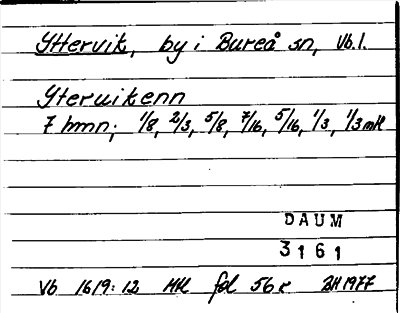 Yttervik, by i Bureå sn, Vb. l.
Yteruikenn
7 hmn; 1/8, 2/3, 5/8, 7/16, 5/16, 1/3, 1/3 mtl
DAUM
3161
Vb 1619:12 MRl fol 56 r BH 1977